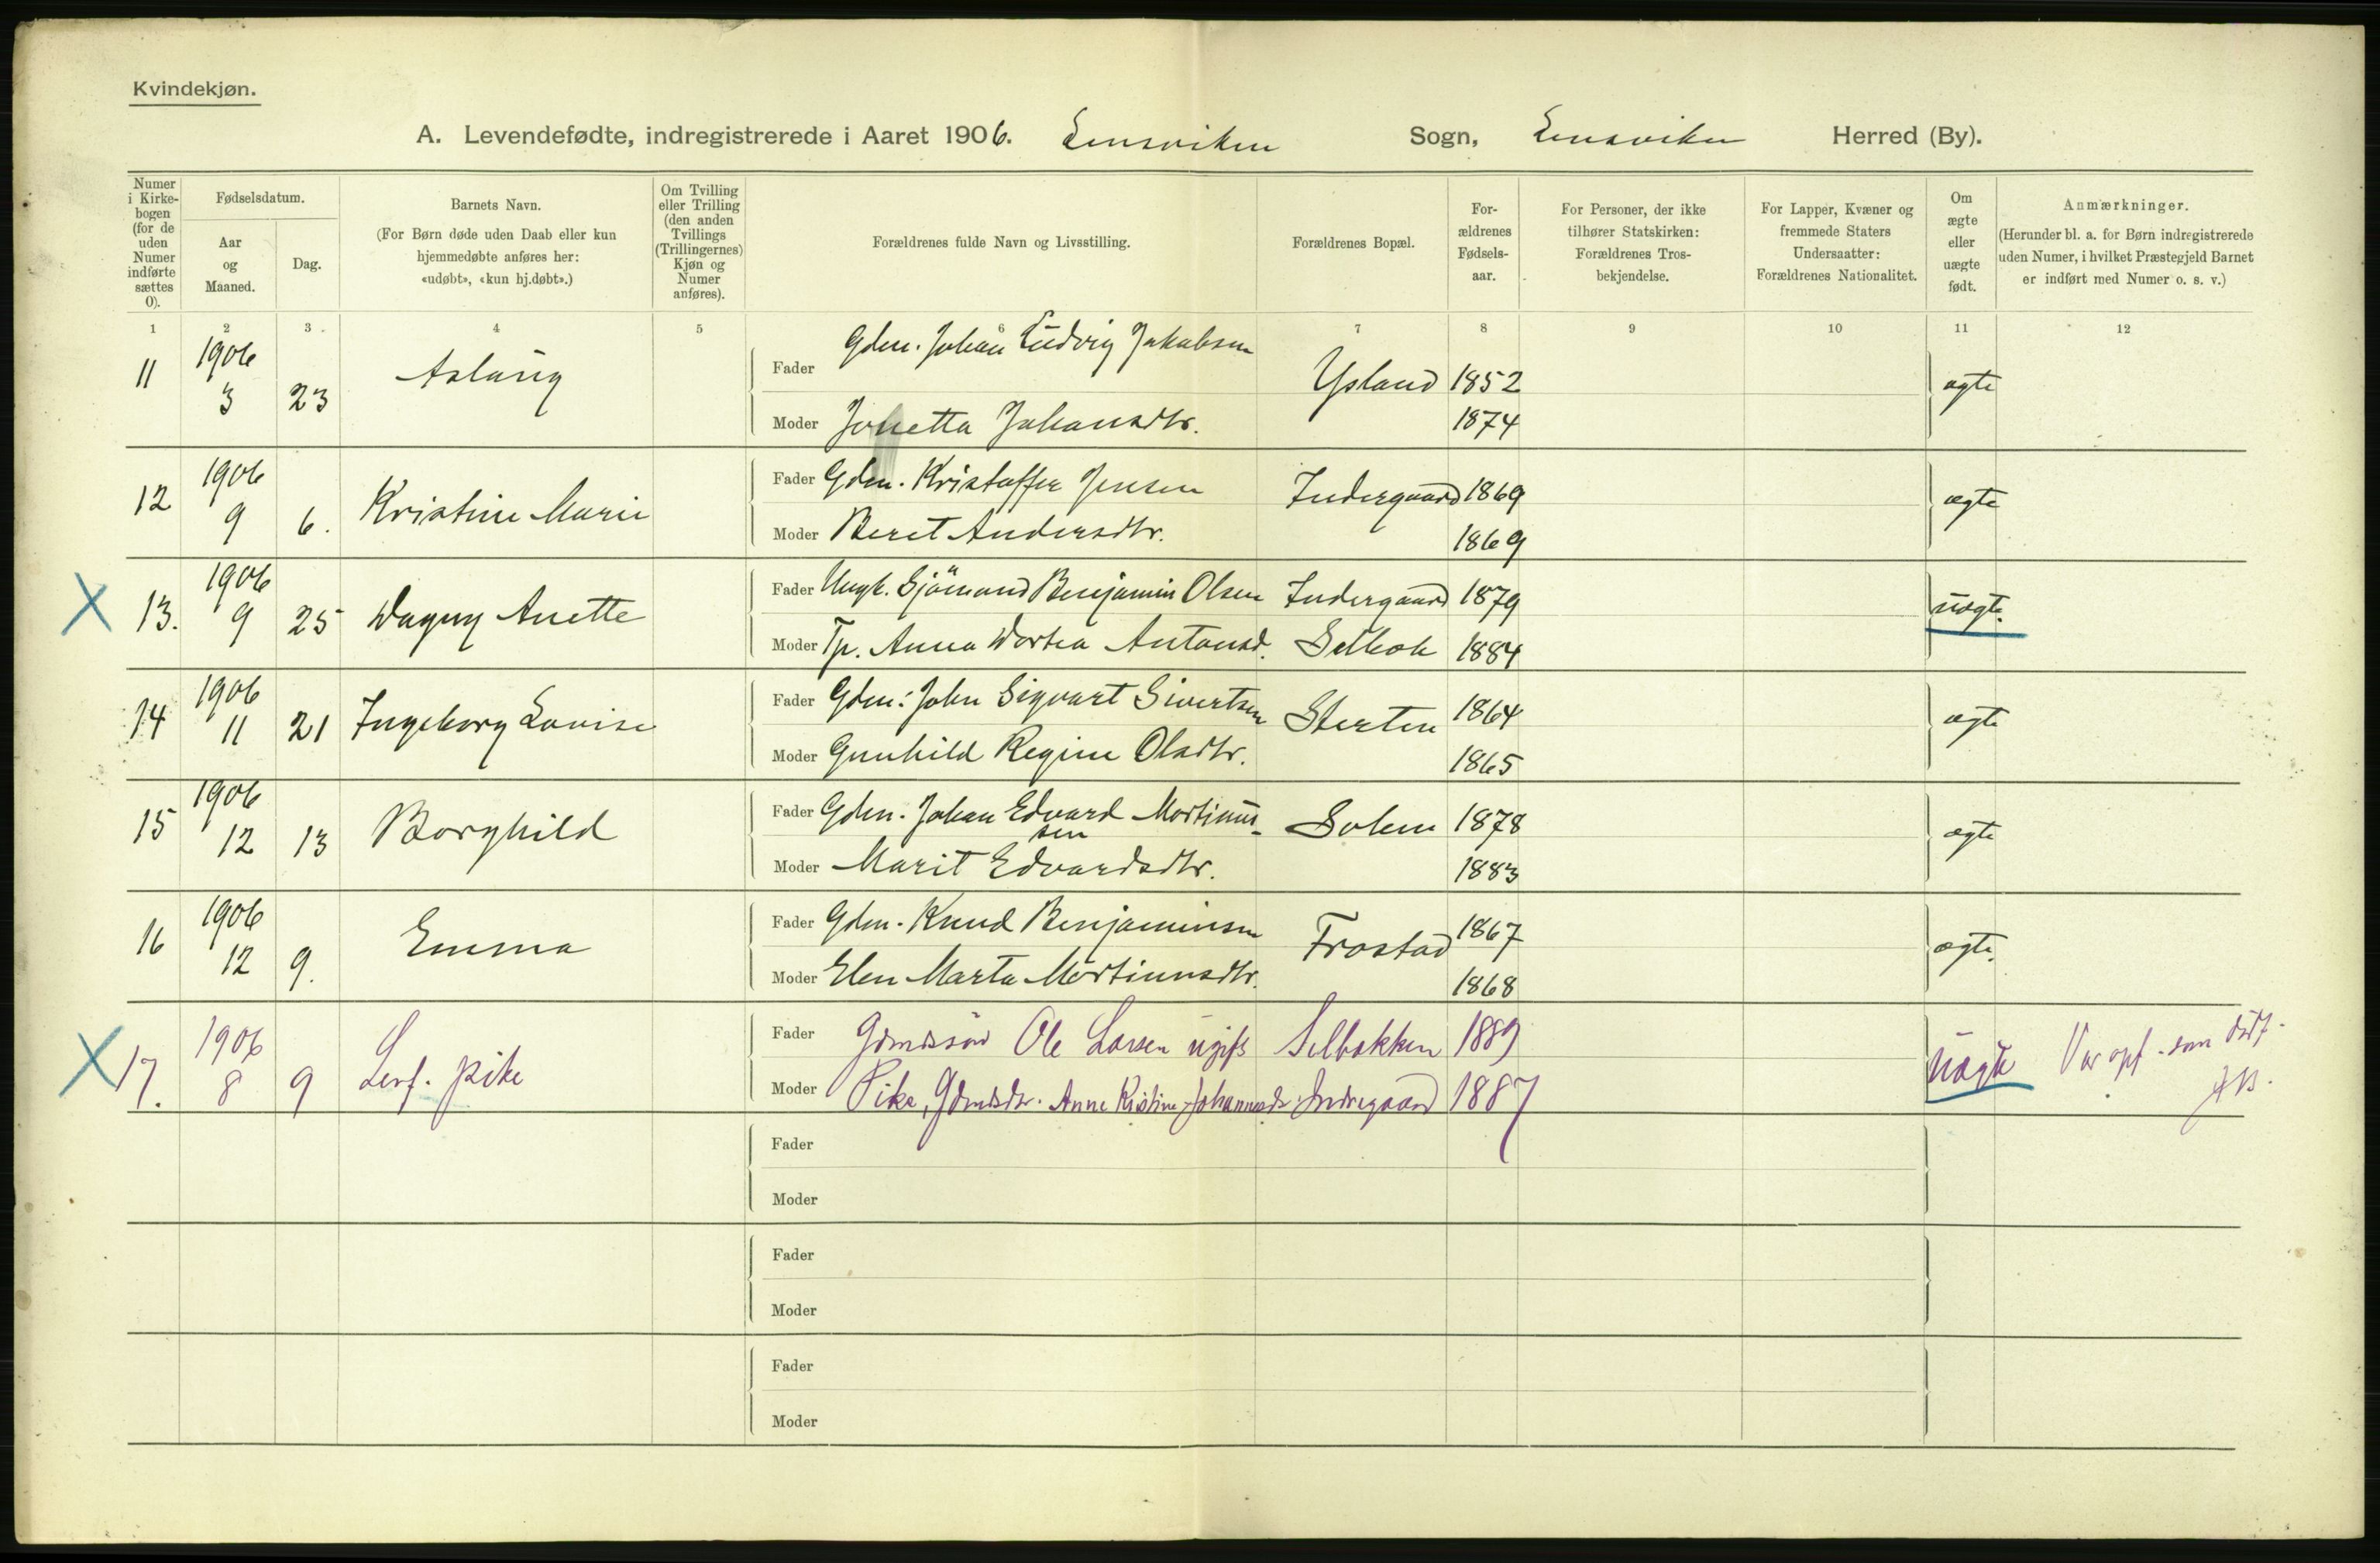 Kvindekjøn.
A. Levendefødte, indregistrerede i Aaret 1906. Lensviken Sogn, Lensviken Herred (By).
Numer i Kirkebogen (for de uden Numer indførte sættes 0).
Fødselsdatum.
Aar og Maaned.
Dag.
Barnets Navn.
(For Børn døde uden Daab eller kun hjemmedøbte anføres her: «udøbt», «kun hj.døbt».)
Om Tvilling eller Trilling (den anden Tvillings (Trillingernes) Kjøn og Numer anføres).
Forældrenes fulde Navn og Livsstilling.
Forældrenes Bopæl.
Forældrenes Fødselsaar.
For Personer, der ikke tilhører Statskirken: Forældrenes Trosbekjendelse.
For Lapper, Kvæner og fremmede Staters Undersaatter: Forældrenes Nationalitet.
Om ægte eller uægte født.
Anmærkninger.
(Herunder bl. a. for Børn indregistrerede uden Numer, i hvilket Præstegjeld Barnet er indført med Numer o. s. v.)
1 2 3 4 5 6 7 8 9 10 11 12
11 1906 3 23 Aslaug
Fader Gdm. Johan Ludvig Jakobsen Ysland 1852 ægte
Moder Jonetta Johansdtr. 1874
12 1906 9 6. Kristine Marie
Fader Gdm. Kristoffer Jensen Indergaard 1869 ægte
Moder Beret Andersdtr. 1869
X 13. 1906 9 25 Dagny Anette
Fader Ungk. Sjömand Benjamin Olsen Indergaard 1879 uægte.
Moder Tp. Anna Dortea Antonsd. Selbek 1884
14 1906 11 21 Ingeborg Lovise
Fader Gdm. John Sigvart Sivertsen Sterten 1864 ægte
Moder Gunhild Regine Olsdtr. 1865
15 1906 12 13 Borghild
Fader Gdm. Johan Edvard Martinussen Solem 1878 ægte
Moder Marit Edvardsdtr. 1883
16 1906 12 9. Emma
Fader Gdm. Knud Benjaminsen Frostad 1867 ægte.
Moder Elen Marta Martinusdtr. 1868
X 17. 1906 8 9 Levf. pike
Fader Gdmdssøn Ole Larsen ugift Selbekken 1889 uægte Var opf. som dødf.
Moder Pike, Gdmdsdr. Anne Kristine Johannesdr. Indregaard 1887
Fader
Moder
Fader
Moder
Fader
Moder